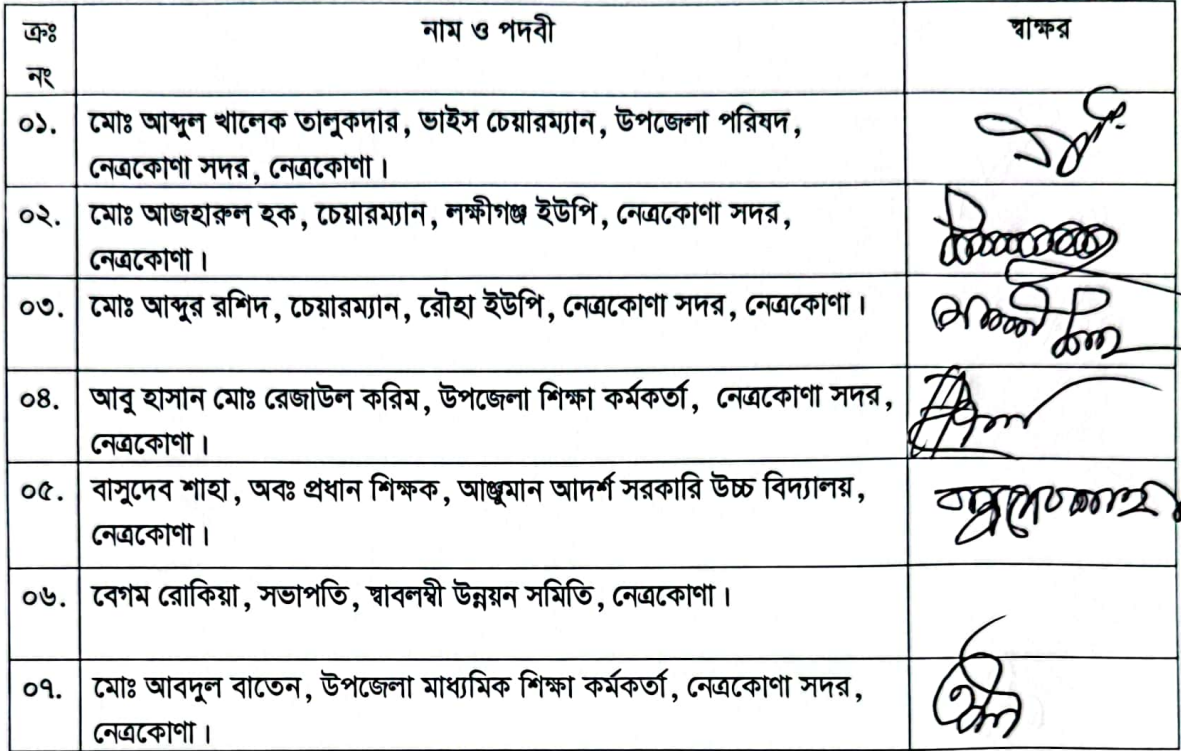 ক্রঃ নাম ও পদবী স্বাক্ষর
নং
০১. মোঃ আব্দুল খালেক তালুকদার, ভাইস চেয়ারম্যান, উপজেলা পরিষদ,
নেত্রকোণা সদর, নেত্রকোণা।
০২. মোঃ আজহারুল হক, চেয়ারম্যান, লক্ষীগঞ্জ ইউপি, নেত্রকোণা সদর,
নেত্রকোণা।
০৩. মোঃ আব্দুর রশিদ, চেয়ারম্যান, রৌহা ইউপি, নেত্রকোণা সদর, নেত্রকোণা।
০৪. আবু হাসান মোঃ রেজাউল করিম, উপজেলা শিক্ষা কর্মকর্তা, নেত্রকোণা সদর,
নেত্রকোণা।
০৫. বাসুদেব শাহা, অবঃ প্রধান শিক্ষক, আঞ্জুমান আদর্শ সরকারি উচ্চ বিদ্যালয়,
নেত্রকোণা।
০৬. বেগম রোকিয়া, সভাপতি, স্বাবলম্বী উন্নয়ন সমিতি, নেত্রকোণা।
০৭. মোঃ আবদুল বাতেন, উপজেলা মাধ্যমিক শিক্ষা কর্মকর্তা, নেত্রকোণা সদর,
নেত্রকোণা।